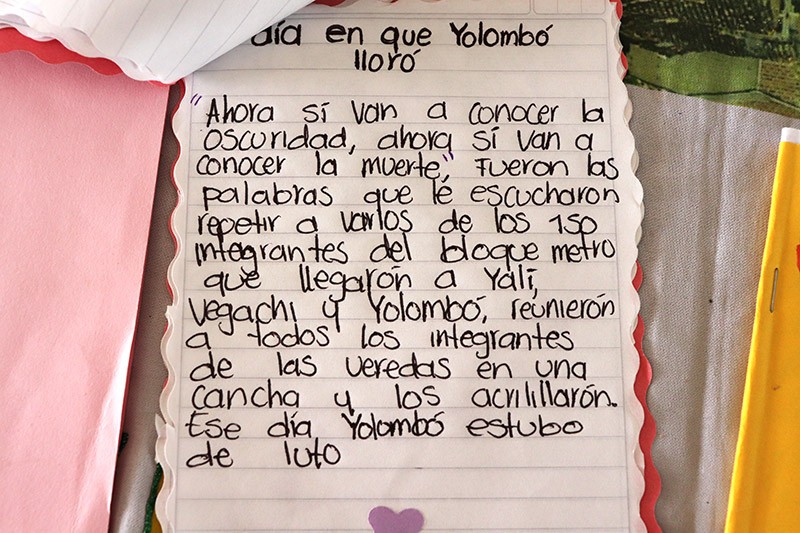 día en que Yolombó
lloró
"Ahora sí van a conocer la
oscuridad, ahora sí van a
conocer la muerte", Fueron las
palabras que le escucharon
repetir a varios de los 150
integrantes del bloque metro
que llegarón a Yalí,
Vegachi y Yolombó, reunierón
a todos los integrantes
de las veredas en una
cancha y los acrilillarón.
Ese día Yolombó estubo
de luto